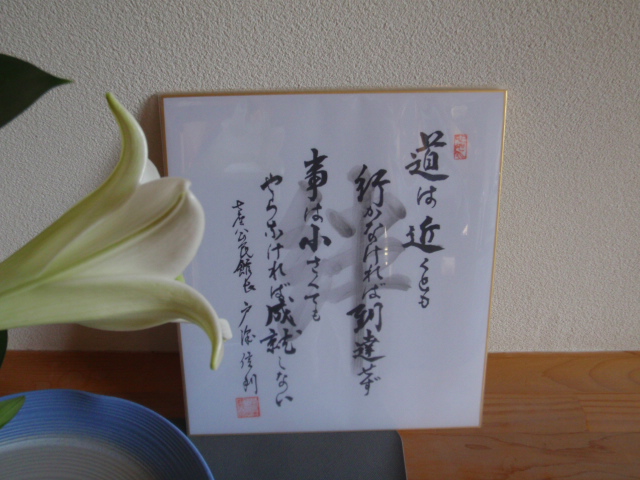 道は近くとも
行かなければ到達せず
事は小さくても
やらなければ成就しない
公民館長 戸 信利